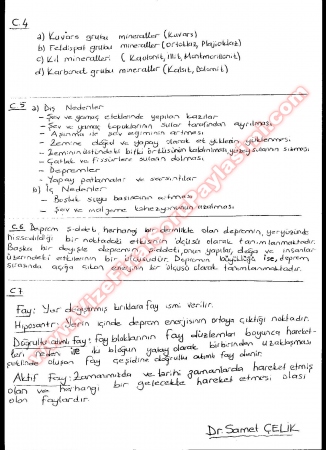 C.4
a) Kuvars grubu mineraller (Kuvars)
b) Feldispat grubu mineraller (Ortoklaz, Plajioklaz)
c) Kil mineralleri (Kaolonit, İllit, Montmorillonit)
d) Karbonat grubu mineraller (Kalsit, Dolomit)
C.5 a) Dış Nedenler
- Şev ve yamaç eteklerinde yapılan kazılar
- Şev ve yamaç topuklarının sular tarafından aşındırılması
- Aşınma ile şev eğiminin artması
- Zemine doğal ve yapay olarak ek yüklerin yüklenmesi
- Zeminin üstündeki bitki örtüsünün kaldırılması
- Çatlak ve fissürlere suların dolması
- Depremler
- Yapay patlamalar ve sarsıntılar
b) İç Nedenler
- Boşluk suyu basıncının artması
- Şev malzeme kohezyonunun azalması
C.6. Deprem şiddeti, herhangi bir derinlikte olan depremin, yeryüzünde
hissedildiği bir noktadaki etkisinin ölçüsü olarak tanımlanmaktadır.
Başka bir deyişle depremin şiddeti, onun yapılar, doğa ve insanlar
üzerindeki etkilerinin bir ölçüsüdür. Depremin büyüklüğü ise, deprem
sırasında açığa çıkan enerjinin bir ölçüsü olarak tanımlanmaktadır.
C.7
Fay: Yer değiştirmiş kırıklara fay ismi verilir.
Hiposantr: Yerin içinde deprem enerjisinin ortaya çıktığı noktadır.
Doğrultu atımlı fay: fay bloklarının fay düzlemleri boyunca hareket-
leri neden ile iki bloğun yatay olarak birbirinden uzaklaşması
şeklinde oluşan fay çeşidine doğrultu atımlı fay denir.
Aktif Fay: Zamanımızda ve tarihi zamanlarda hareket etmiş
olan ve herhangi bir gelecekte hareket etmesi olası
olan faylardır.
Dr. Samet ÇELİK